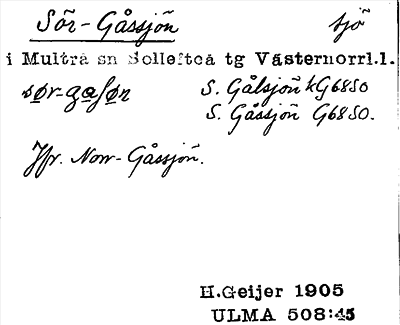 Sör-Gåssjön sjö
i Multrå sn Sollefteå tg Västernorrl.l.
S. Gålsjön kG6850
S. Gåssjön G6850.
Jfr. Norr-Gåssjön.
H.Geijer 1905
ULMA 508:45